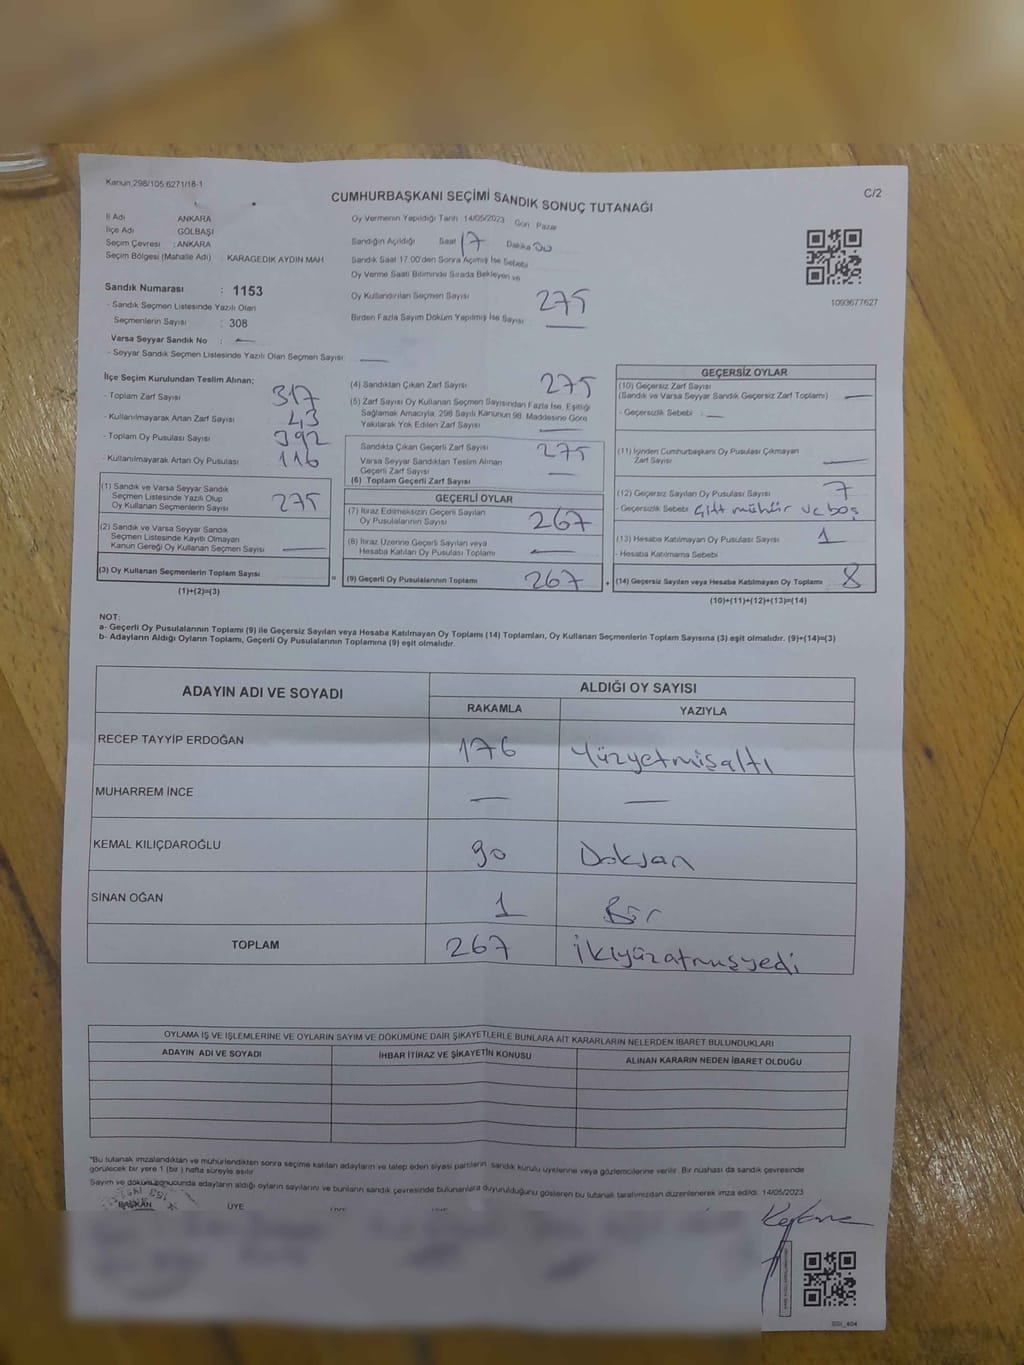 Kanun,298/105:6271/18-1
C/2
CUMHURBAŞKANI SEÇİMİ SANDIK SONUÇ TUTANAĞI
İl Adı ANKARA
İlçe Adı GÖLBAŞI
Seçim Çevresi : ANKARA
Seçim Bölgesi (Mahalle Adı) : KARAGEDİK AYDIN MAH
Sandık Numarası : 1153
- Sandık Seçmen Listesinde Yazılı Olan
Seçmenlerin Sayısı : 308
Varsa Seyyar Sandık No : —
- Seyyar Sandık Seçmen Listesinde Yazılı Olan Seçmen Sayısı: —
Oy Vermenin Yapıldığı Tarih : 14/05/2023 Gün : Pazar
Sandığın Açıldığı Saat 17 Dakika 00
Sandık Saat 17.00'den Sonra Açılmış İse Sebebi
Oy Verme Saati Bitiminde Sırada Bekleyen ve
Oy Kullandırılan Seçmen Sayısı 275
Birden Fazla Sayım Döküm Yapılmış İse Sayısı —
1093677627
İlçe Seçim Kurulundan Teslim Alınan;
- Toplam Zarf Sayısı 317
- Kullanılmayarak Artan Zarf Sayısı 43
- Toplam Oy Pusulası Sayısı 392
- Kullanılmayarak Artan Oy Pusulası 116
(1) Sandık ve Varsa Seyyar Sandık
Seçmen Listesinde Yazılı Olup
Oy Kullanan Seçmenlerin Sayısı 275
(2) Sandık ve Varsa Seyyar Sandık
Seçmen Listesinde Kayıtlı Olmayan
Kanun Gereği Oy Kullanan Seçmen Sayısı —
(3) Oy Kullanan Seçmenlerin Toplam Sayısı
(1)+(2)=(3)
(4) Sandıktan Çıkan Zarf Sayısı 275
(5) Zarf Sayısı Oy Kullanan Seçmen Sayısından Fazla İse, Eşitliği
Sağlamak Amacıyla, 298 Sayılı Kanunun 98. Maddesine Göre
Yakılarak Yok Edilen Zarf Sayısı —
Sandıkta Çıkan Geçerli Zarf Sayısı 275
Varsa Seyyar Sandıktan Teslim Alınan
Geçerli Zarf Sayısı —
(6) Toplam Geçerli Zarf Sayısı
GEÇERLİ OYLAR
(7) İtiraz Edilmeksizin Geçerli Sayılan
Oy Pusulalarının Sayısı 267
(8) İtiraz Üzerine Geçerli Sayılan veya
Hesaba Katılan Oy Pusulası Toplamı —
= (9) Geçerli Oy Pusulalarının Toplamı 267
GEÇERSİZ OYLAR
(10) Geçersiz Zarf Sayısı
(Sandık ve Varsa Seyyar Sandık Geçersiz Zarf Toplamı) —
- Geçersizlik Sebebi : —
(11) İçinden Cumhurbaşkanı Oy Pusulası Çıkmayan
Zarf Sayısı —
(12) Geçersiz Sayılan Oy Pusulası Sayısı 7
- Geçersizlik Sebebi Çift mühür ve boş
(13) Hesaba Katılmayan Oy Pusulası Sayısı 1
- Hesaba Katılmama Sebebi
+ (14) Geçersiz Sayılan veya Hesaba Katılmayan Oy Toplamı 8
(10)+(11)+(12)+(13)=(14)
NOT:
a- Geçerli Oy Pusulalarının Toplamı (9) ile Geçersiz Sayılan veya Hesaba Katılmayan Oy Toplamı (14) Toplamları, Oy Kullanan Seçmenlerin Toplam Sayısına (3) eşit olmalıdır. (9)+(14)=(3)
b- Adayların Aldığı Oyların Toplamı, Geçerli Oy Pusulalarının Toplamına (9) eşit olmalıdır.
ADAYIN ADI VE SOYADI ALDIĞI OY SAYISI
RAKAMLA YAZIYLA
RECEP TAYYİP ERDOĞAN 176 Yüzyetmişaltı
MUHARREM İNCE — —
KEMAL KILIÇDAROĞLU 90 Doksan
SİNAN OĞAN 1 Bir
TOPLAM 267 ikiyüzatmışyedi
OYLAMA İŞ VE İŞLEMLERİNE VE OYLARIN SAYIM VE DÖKÜMÜNE DAİR ŞİKAYETLERLE BUNLARA AİT KARARLARIN NELERDEN İBARET BULUNDUKLARI
ADAYIN ADI VE SOYADI İHBAR İTİRAZ VE ŞİKAYETİN KONUSU ALINAN KARARIN NEDEN İBARET OLDUĞU
*Bu tutanak imzalandıktan ve mühürlendikten sonra seçime katılan adayların ve talep eden siyasi partilerin sandık kurulu üyelerine veya gözlemcilerine verilir. Bir nüshası da sandık çevresinde
görülecek bir yere 1 (bir) hafta süreyle asılır
Sayım ve dökümü sonucunda adayların aldığı oyların sayılarını ve bunların sandık çevresinde bulunanlara duyurulduğunu gösteren bu tutanak tarafımızdan düzenlenerek imza edildi. 14/05/2023
BAŞKAN ÜYE
SSI_404